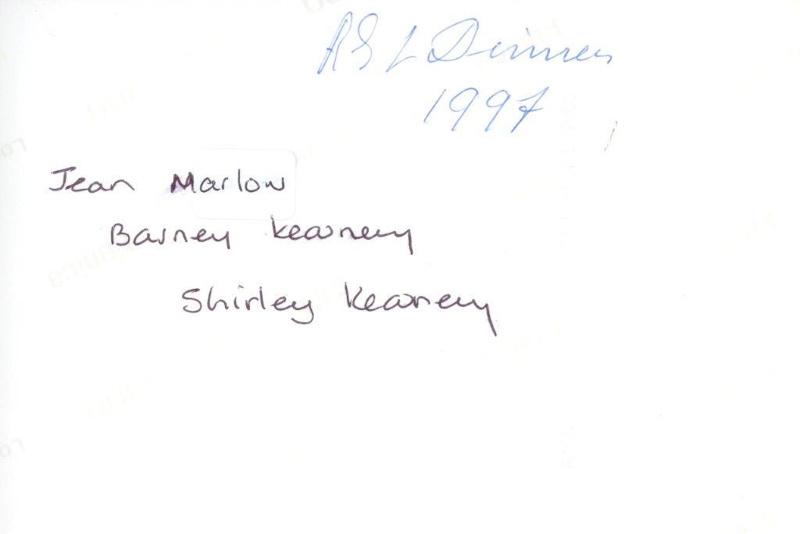 RSL Dinner
1997
Jean Marlow
Barney Kearney
Shirley Kearney